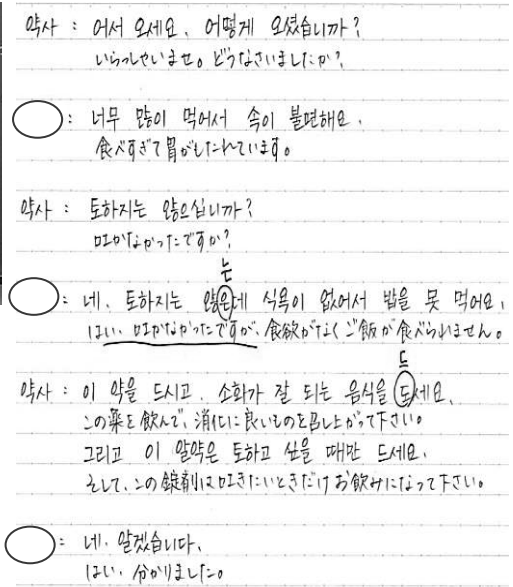 약사 : 어서 오세요. 어떻게 오셨습니까?
いらっしゃいませ。どうなさいましたか?
: 너무 많이 먹어서 속이 불편해요.
食べすぎて胃がもたれています。
약사 : 토하지는 않으십니까?
吐かなかったですか?
는
: 네. 토하지는 않은데 식욕이 없어서 밥을 못 먹어요.
はい、吐かなかったですが、食欲がなくご飯が食べられません。
드
약사 : 이 약을 드시고, 소화가 잘 되는 음식을
この薬を飲んで、消化に良いものを召し上がって下さい。
그리고 이 알약은 토하고 싶을 때만 드세요.
そして、この錠剤は吐きたいときだけお飲みになって下さい。
: 네. 알겠습니다.
はい、分かりました。